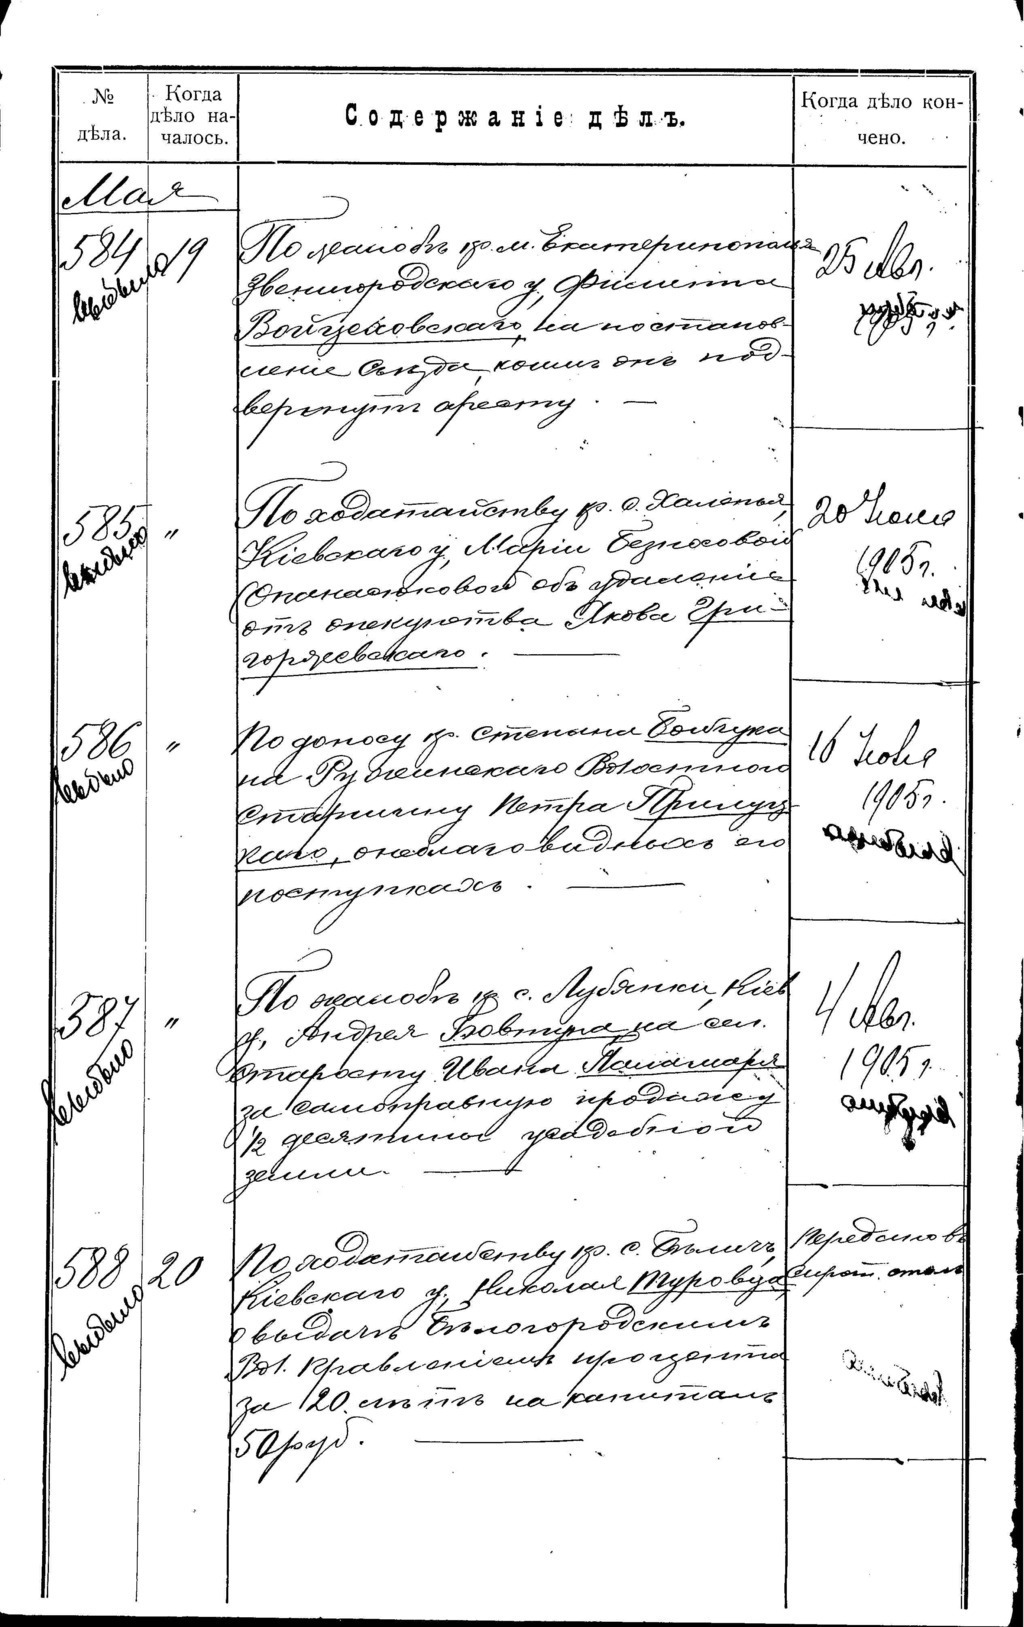 №
дѣла.
Когда
дѣло на-
чалось.
Содержаніе дѣлъ.
Когда дѣло кон-
чено.
Мая
584
выбыло
19
По жалобѣ кр. м. Екатеринополя
Звенигородскаго у., Филиппа
Войцеховскаго, на постанов-
леніе Съѣзда, коимъ онъ под-
вергнутъ аресту. —
25 Авг.
1905 г.
585
выбыло
"
По ходатайству кр. с. Халепья,
Кіевскаго у., Маріи Безносовой
(Опанасюковой) объ удаленіи
отъ опекунства Якова Гри-
горжевскаго. —
20 Іюля
1905 г.
586
выбыло
"
По доносу кр. Степана
на Ружинскаго Волостного
Старшину Петра Прилуц-
каго, о неблаговидныхъ его
поступкахъ. —
16 Іюня
1905 г.
выбыло
587
выбыло
"
По жалобѣ кр. с. Лубянки, Кіев.
у., Андрея Бовтуна на сел.
старосту Ивана Паламаря
за самоправную продажу
1/2 десятины усадебной
земли. —
4 Авг.
1905 г.
выбыло
588
выбыло
20
По ходатайству кр. с. Бѣличъ,
Кіевскаго у., Николая Туровца
о выдачѣ Бѣлогородскимъ
Вол. Правленіемъ процента
за 20 лѣтъ на капиталъ
50 руб. —
Передано въ
сирот. столъ
выбыло